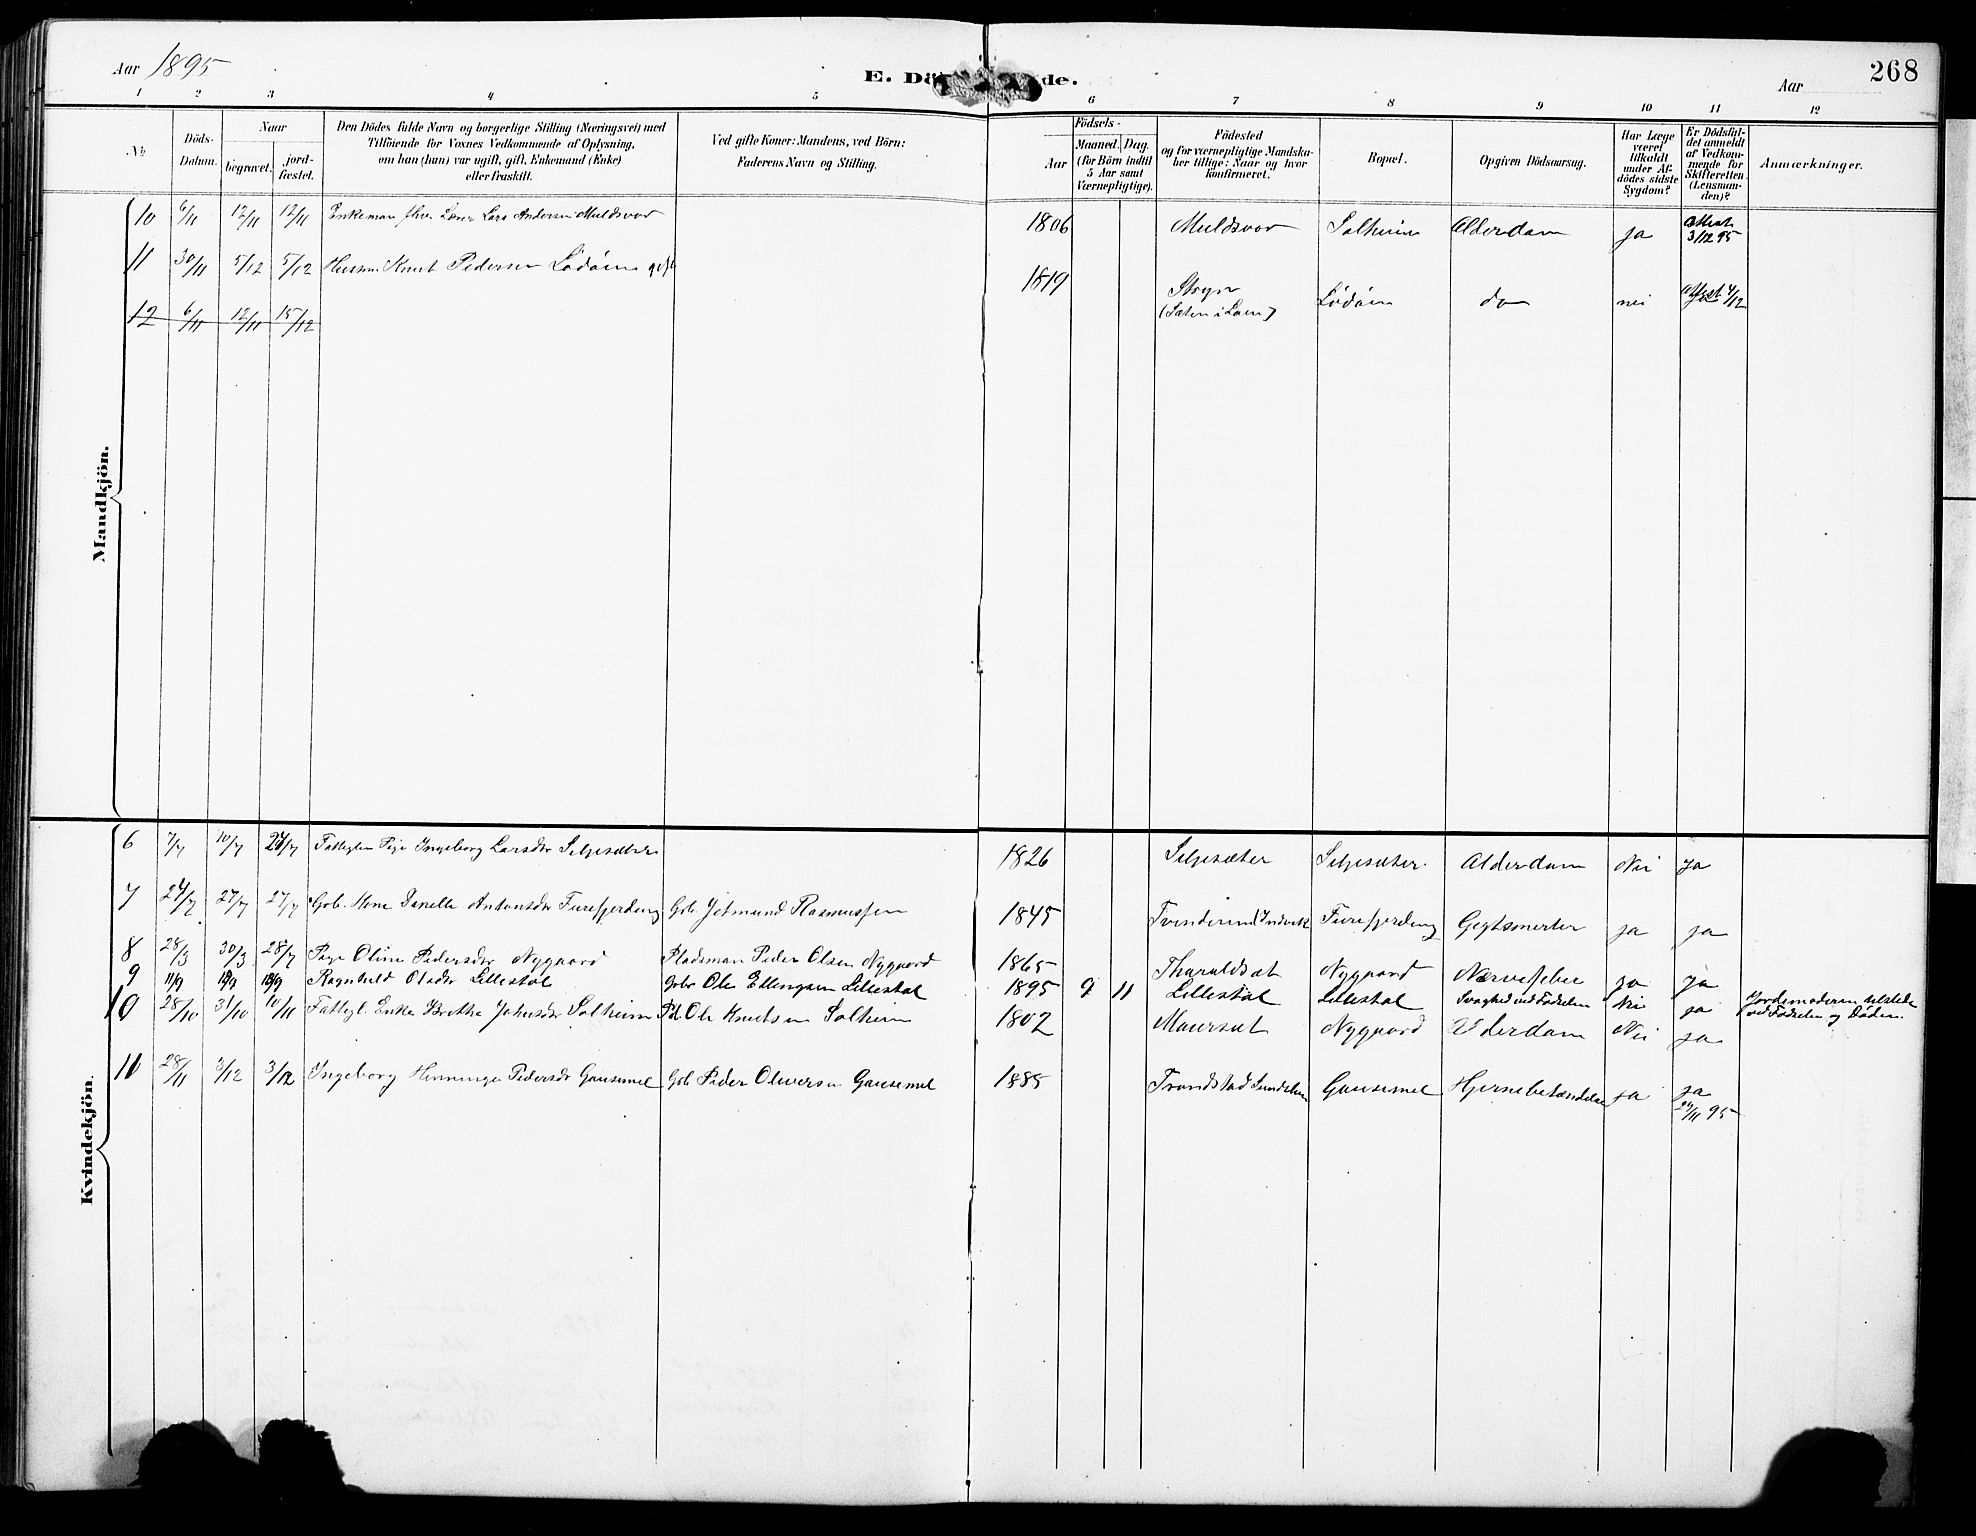 Aar 1895
E. Dö de.
Aar
268
1 2 3 4 5 6 7 8 9 10 11 12
No
Döds-Datum.
Naar
begravet.
jord-fæstet.
Den Dödes fulde Navn og borgerlige Stilling (Næringsvei) med
Tilföiende for Voxnes Vedkommende af Oplysning,
om han (hun) var ugift, gift, Enkemand (Enke)
eller fraskilt.
Ved gifte Koner: Mandens, ved Börn:
Faderens Navn og Stilling.
Födsels-
Aar
Maaned. Dag.
(for Börn indtil
5 Aar samt
Værnepligtige).
Födested
og for værnepligtige Mandska-
ber tillige: Naar og hvor
konfirmeret.
Bopæl.
Opgiven Dödsaarsag.
Har Læge
været
tilkaldt
under Af-
dödes sidste
Sygdom?
Er Dödsfal-
det anmeldt
af Vedkom-
mende for
Skifteretten
(Lensman-
den)?
Anmærkninger.
Mandkjön.
10 6/11 12/11 12/11 Enkeman Lars Andersen Muldsvor 1806 Muldsvor Solheim Alderdom ja Attest 3/12 95
11 30/11 5/12 5/12 Husman Knut Pedersen Lödöen gift 1819 Stryn (Sæten i Loen) Lödöen do nei Attest 4/12
12 6/11 12/11 15/12
Kvindekjön.
6 7/7 10/7 24/7 Fattiglem Pige Ingeborg Larsdr Seljesæter 1826 Seljesæter Seljesæter Alderdom Nei Ja
7 24/7 27/7 27/7 Gbr. Kone Danelle Antonsdr Furefjerding Gbr. Jetmund Rasmussen 1845 Tvinderein (Indvik Furefjerding Gigtsmerter ja ja
8 28/3 30/3 28/7 Pige Oline Pedersdr Nygaard Pladsman Peder Olsen Nygaard 1865 Tharaldsæt Nygaard Nervefeber ja ja
9 11/9 19/9 19/9 Ragnhild Olsdr Lillestøl Gbr Ole Ellingsen Lillestøl 1895 9 11 Lillestøl Lillestøl Svaghed ved Födselen Nei ja Jordemoderen tilstede ved Födselen og Döden.
10 28/10 31/10 10/11 Fattigl. Enke Brithe Johnsdr Solheim Pl. Ole Knutsen Solheim 1802 Maurset Nygaard Alderdom Nei ja
11 28/11 3/12 3/12 Ingeborg Henninge Pedersdr Gausemel Gbr Peder Oliversen Gausemel 1885 Trandstad Sundelven Gausemel Hjernebetændelse ja ja 29/11 95